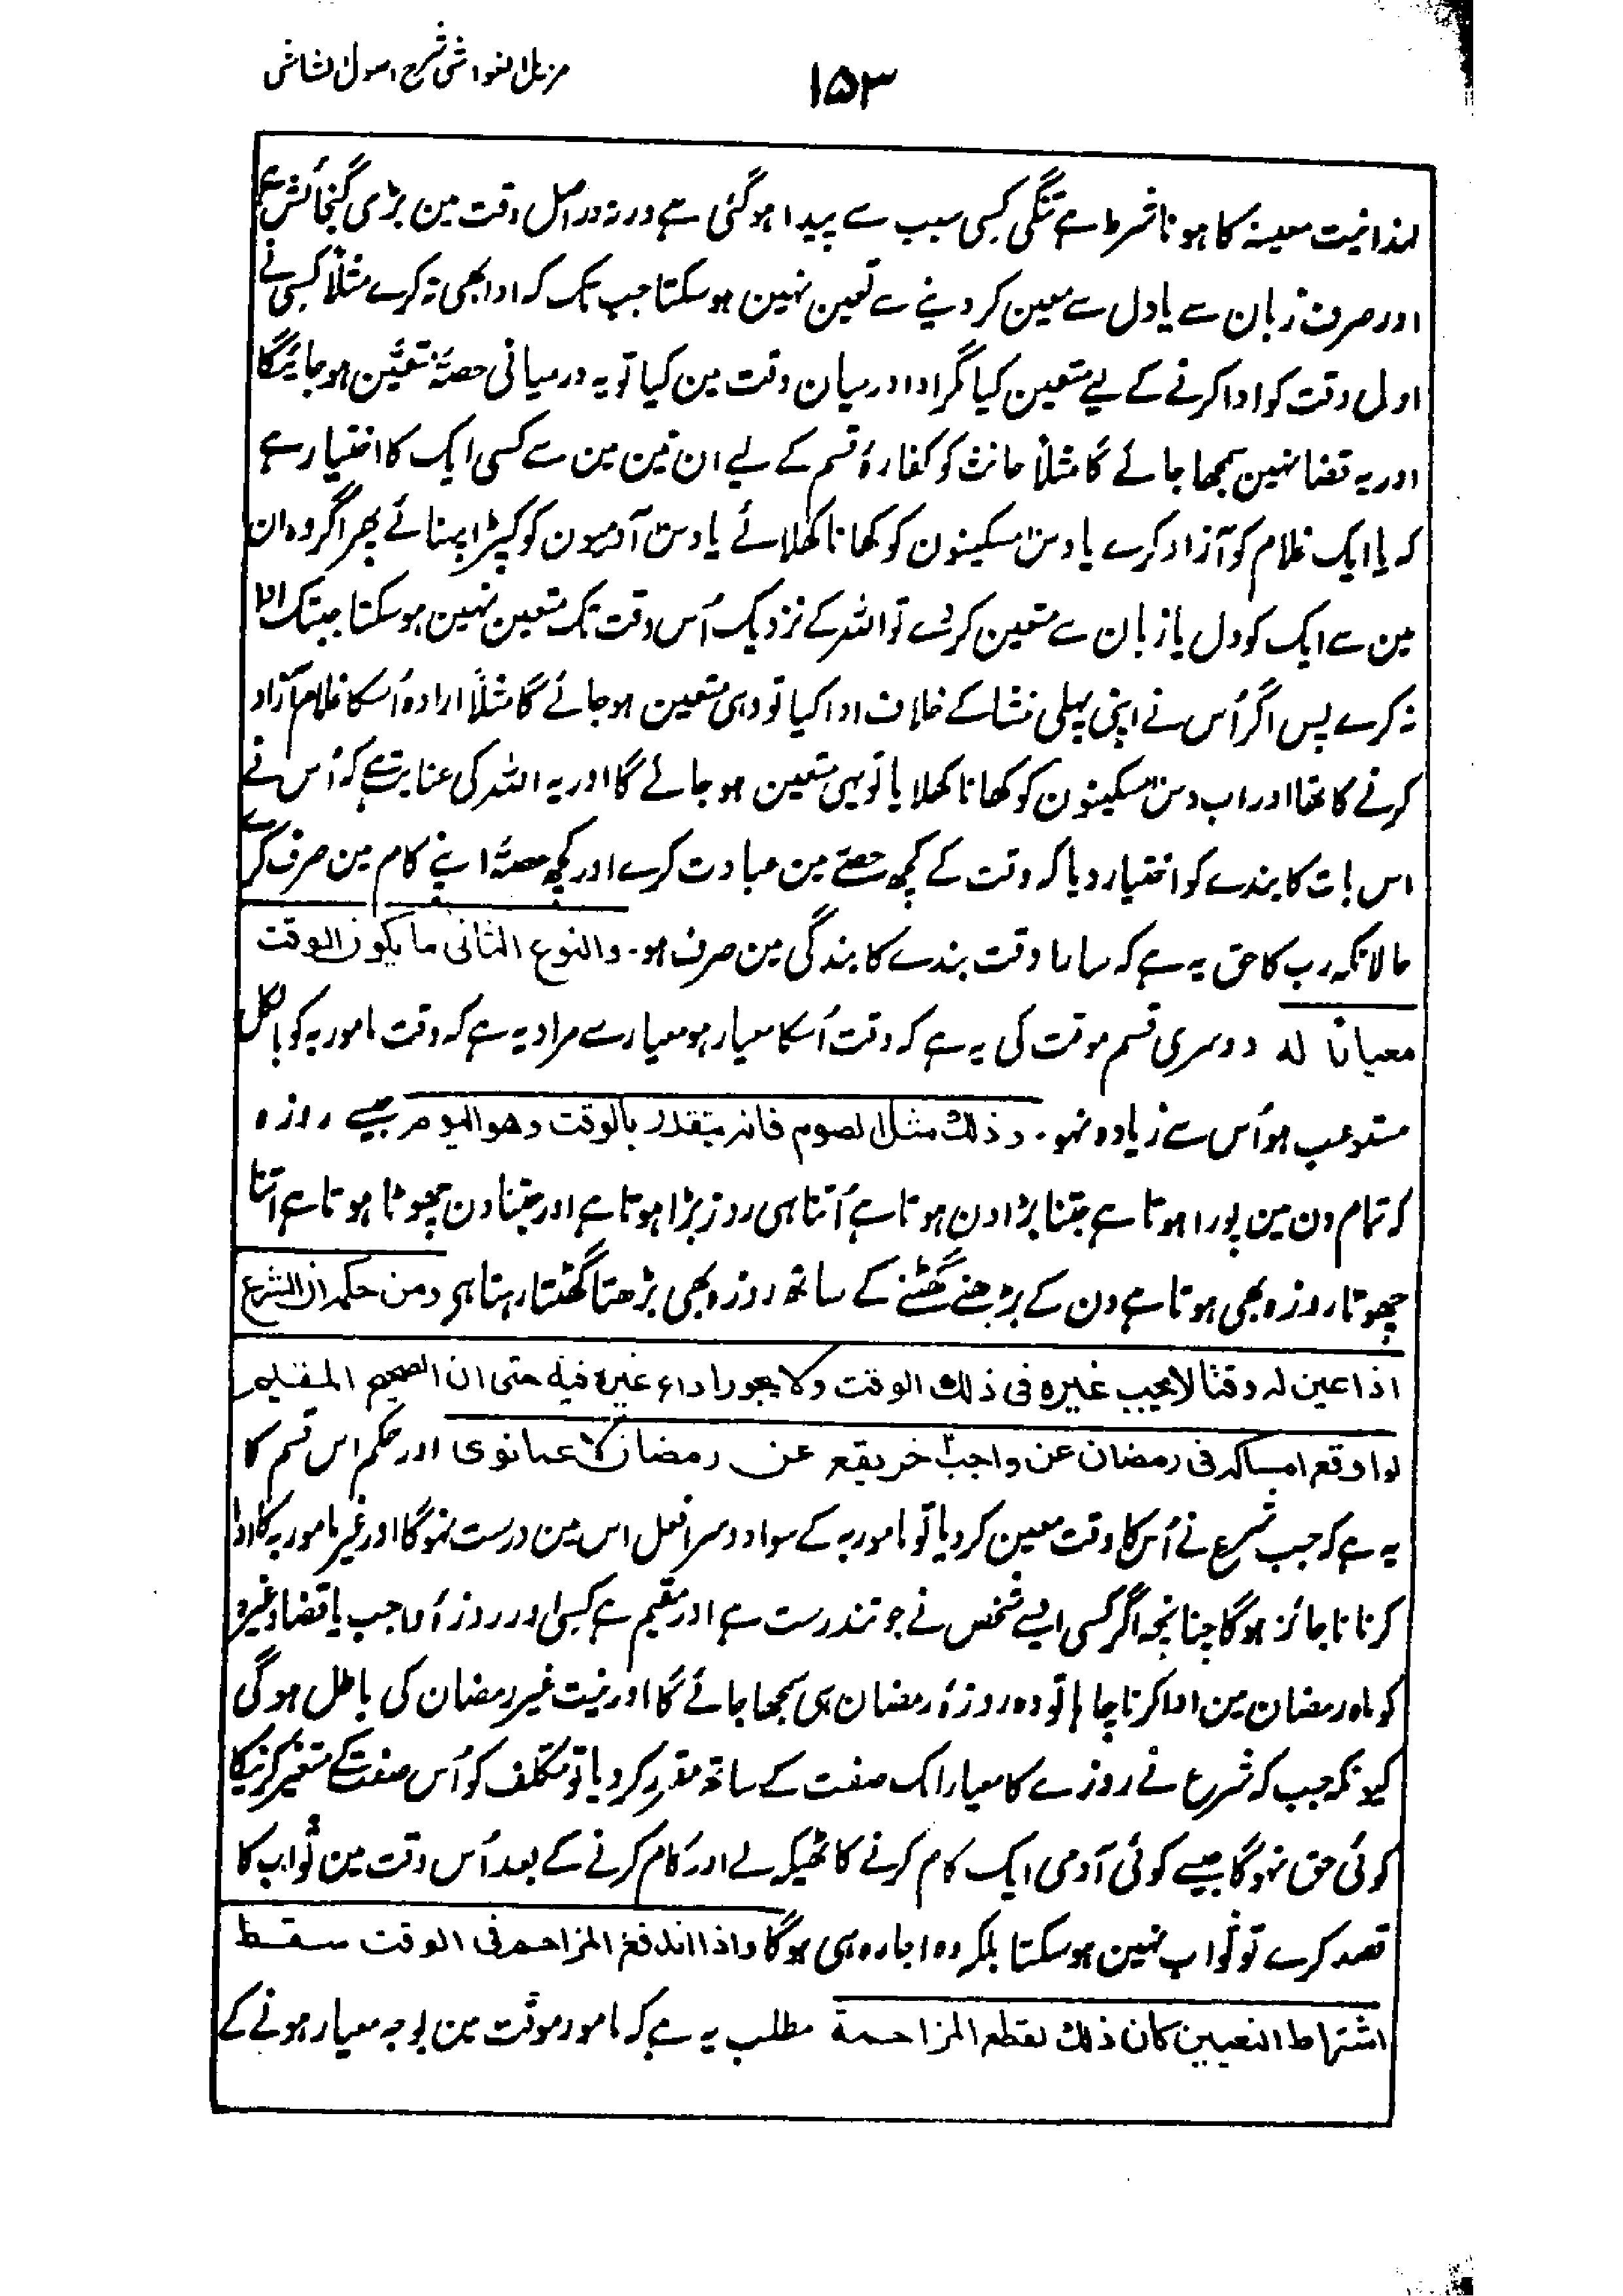 ۱۵۳
مزیل الغواشی شرح اصول الشاشی
لہذا نیت معینہ کا ہونا شرط ہے تنگی کسی سبب سے پیدا ہوگئی ہے ورنہ دراصل وقت مین بڑی گنجائش ہے
اور صرف زبان سے یا دل سے معین کر دینے سے تعین نہین ہو سکتا جب تک کہ ادا بھی نہ کرے مثلاً کسی نے
اول وقت کو ادا کرنے کے لیے متعین کیا مگر ادا درمیان وقت مین کیا تو یہ درمیانی حصہ متعین ہو جائیگا
اور یہ قضا نہین سمجھا جائے گا مثلاً حانث کو کفارۂ قسم کے لیے ان تین مین سے کسی ایک کا اختیار ہے
کہ یا ایک غلام کو آزاد کرے یا دس مسکینون کو کھانا کھلائے یا دس آدمیون کو کپڑا پہنائے پھر اگر وہ ان
مین سے ایک کو دل یا زبان سے متعین کرے تو اللہ کے نزدیک اُس وقت تک متعین نہین ہو سکتا جبتک ادا
نہ کرے پس اگر اُس نے اپنی پہلی منشا کے خلاف ادا کیا تو وہی متعین ہو جائے گا مثلاً ارادہ اُسکا غلام آزاد
کرنے کا تھا اور اب دس مسکینون کو کھانا کھلایا تو یہی متعین ہو جائے گا اور یہ اللہ کی عنایت ہے کہ اُس نے
اس بات کا بندے کو اختیار دیا کہ وقت کے کچھ حصے مین عبادت کرے اور کچھ حصہ اپنے کام مین صرف کرے
حالانکہ رب کا حق یہ ہے کہ سارا وقت بندے کا بندگی مین صرف ہو۔ والنوع الثانی ما یکون الوقت
معیارا له دوسری قسم موقت کی یہ ہے کہ وقت اُسکا معیار ہو معیار سے مراد یہ ہے کہ وقت مامور بہ کو بالکل
مستوعب ہو اُس سے زیادہ نہو۔ وذلك مثل الصوم فانه یتقدر بالوقت وهو الیوم جیسے روزہ
کہ تمام دن مین پورا ہوتا ہے جتنا بڑا دن ہوتا ہے اُتنا ہی روز بڑا ہوتا ہے اور جتنا دن چھوٹا ہوتا ہے اُتنا
چھوٹا روزہ بھی ہوتا ہے دن کے بڑھنے گھٹنے کے ساتھ روزہ بھی بڑھتا گھٹتا رہتا ہے ومن حکمه ان الشرع
اذا عین له وقتا لا یجب غیره فی ذلك الوقت ولا یجوز اداء غیره فیه حتی ان الصحیح المقیم
لو اوقع امساکه فی رمضان عن واجب آخر یقع عن رمضان لا عما نوی اور حکم اس قسم کا
یہ ہے کہ جب شرع نے اُس کا وقت معین کر دیا تو مامور بہ کے سوا دوسرا فعل اس مین درست نہوگا اور غیر مامور بہ کا ادا
کرنا ناجائز ہوگا چنانچہ اگر کسی ایسے شخص نے جو تندرست ہے اور مقیم ہے کسی اور روزۂ واجب یا قضا وغیرہ
کو ماہ رمضان مین ادا کرنا چاہا تو وہ روزۂ رمضان ہی سمجھا جائے گا اور نیت غیر رمضان کی باطل ہوگی
کیونکہ جب کہ شرع نے روزے کا معیار اک صفت کے ساتھ مقرر کر دیا تو مکلف کو اُس صفت کے متغیر کرنیکا
کوئی حق نہوگا جیسے کوئی آدمی ایک کام کرنے کا ٹھیکہ لے اور کام کرنے کے بعد اُس وقت مین ثواب کا
قصد کرے تو ثواب نہین ہو سکتا بلکہ وہ اجارہ ہی ہوگا واذا اندفع المزاحم فی الوقت سقط
اشتراط التعیین کان ذلك لقطع المزاحمة مطلب یہ ہے کہ مامور موقت مین بوجہ معیار ہونے کے